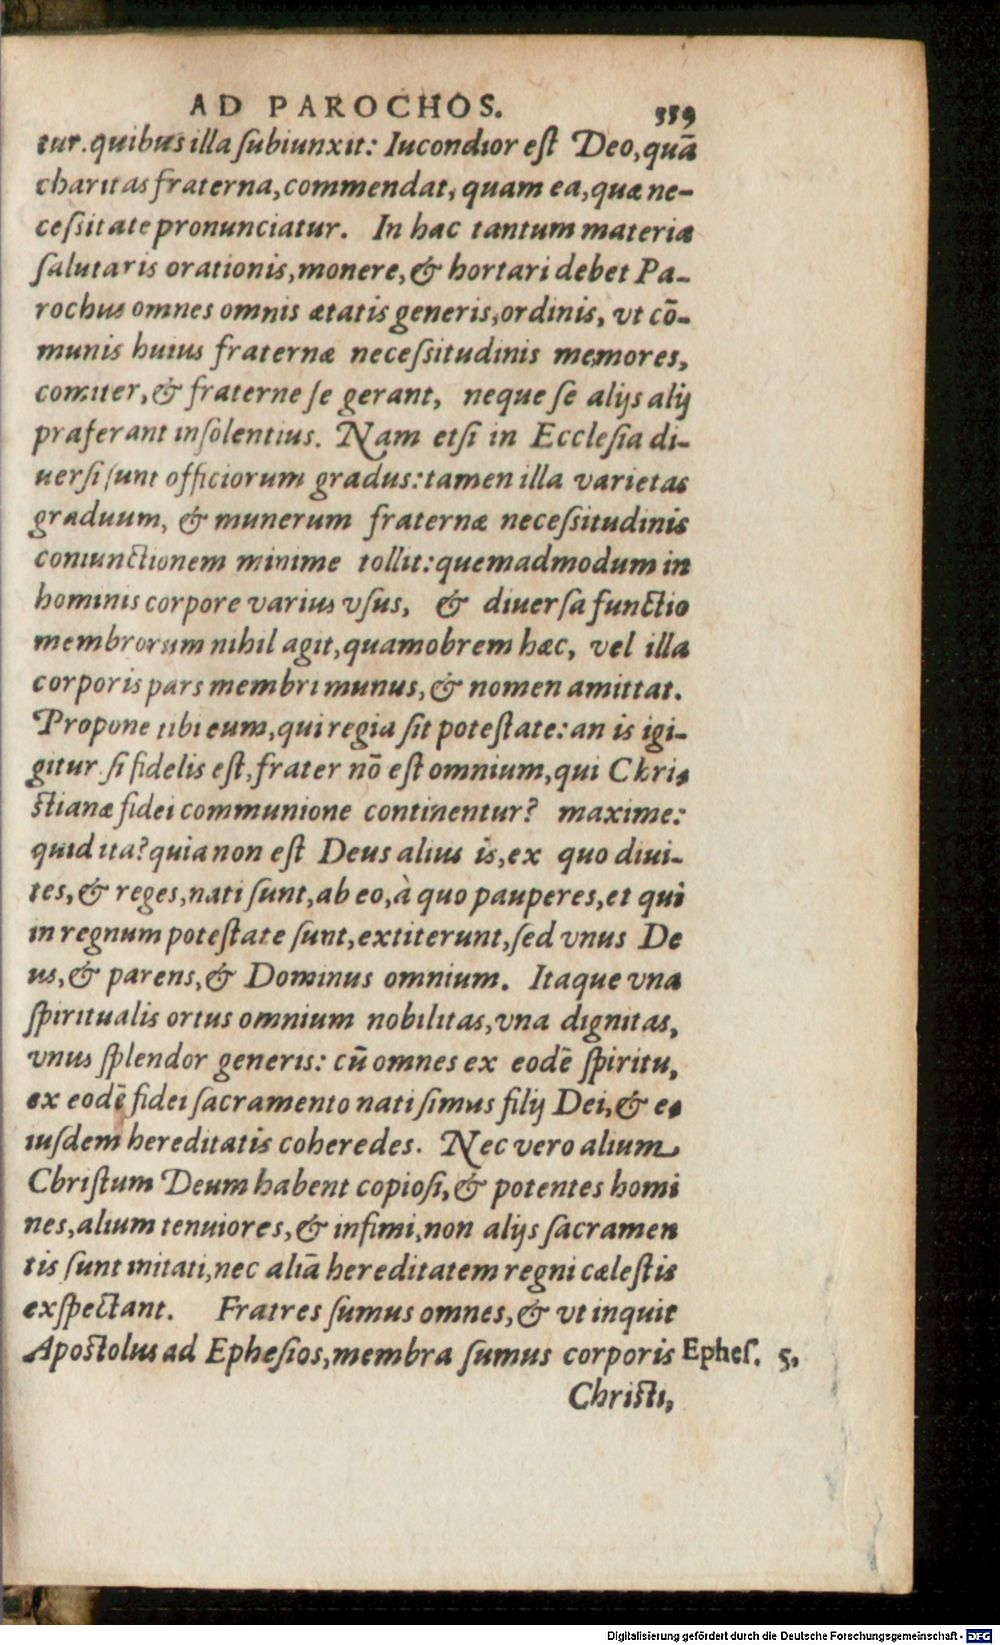 AD PAROCHOS. 559
tur. quibus illa ſubiunxit: Iucondior eſt Deo, quā
charitas fraterna, commendat, quam ea, quæ ne-
ceſsitate pronunciatur. In hac tantum materia
ſalutaris orationis, monere, & hortari debet Pa-
rochus omnes omnis ætatis generis, ordinis, vt cō-
munis huius fraternæ neceſsitudinis memores,
comiter, & fraterne ſe gerant, neque ſe alijs alij
præferant inſolentius. Nam etſi in Eccleſia di-
uerſi ſunt officiorum gradus: tamen illa varietas
graduum, & munerum fraternæ neceſsitudinis
coniunctionem minime tollit: quemadmodum in
hominis corpore varius vſus, & diuerſa functio
membrorum nihil agit, quamobrem hæc, vel illa
corporis pars membri munus, & nomen amittat.
Propone tibi eum, qui regia ſit poteſtate: an is igi-
gitur ſi fidelis eſt, frater nō eſt omnium, qui Chri-
ſtianæ fidei communione continentur? maxime:
quid ita? quia non eſt Deus alius is, ex quo diui-
tes, & reges, nati ſunt, ab eo, à quo pauperes, et qui
in regnum poteſtate ſunt, extiterunt, ſed vnus De
us, & parens, & Dominus omnium. Itaque vna
ſpiritualis ortus omnium nobilitas, vna dignitas,
vnus ſplendor generis: cū omnes ex eodē ſpiritu,
ex eodē fidei ſacramento nati ſimus filij Dei, & e-
iuſdem hereditatis coheredes. Nec vero alium
Chriſtum Deum habent copioſi, & potentes homi
nes, alium tenuiores, & infimi, non alijs ſacramen
tis ſunt initati, nec aliā hereditatem regni cæleſtis
exſpectant. Fratres ſumus omnes, & vt inquit
Apoſtolus ad Epheſios, membra ſumus corporis Epheſ. 5.
Chriſti,
Digitalisierung gefördert durch die Deutsche Forschungsgemeinschaft - DFG